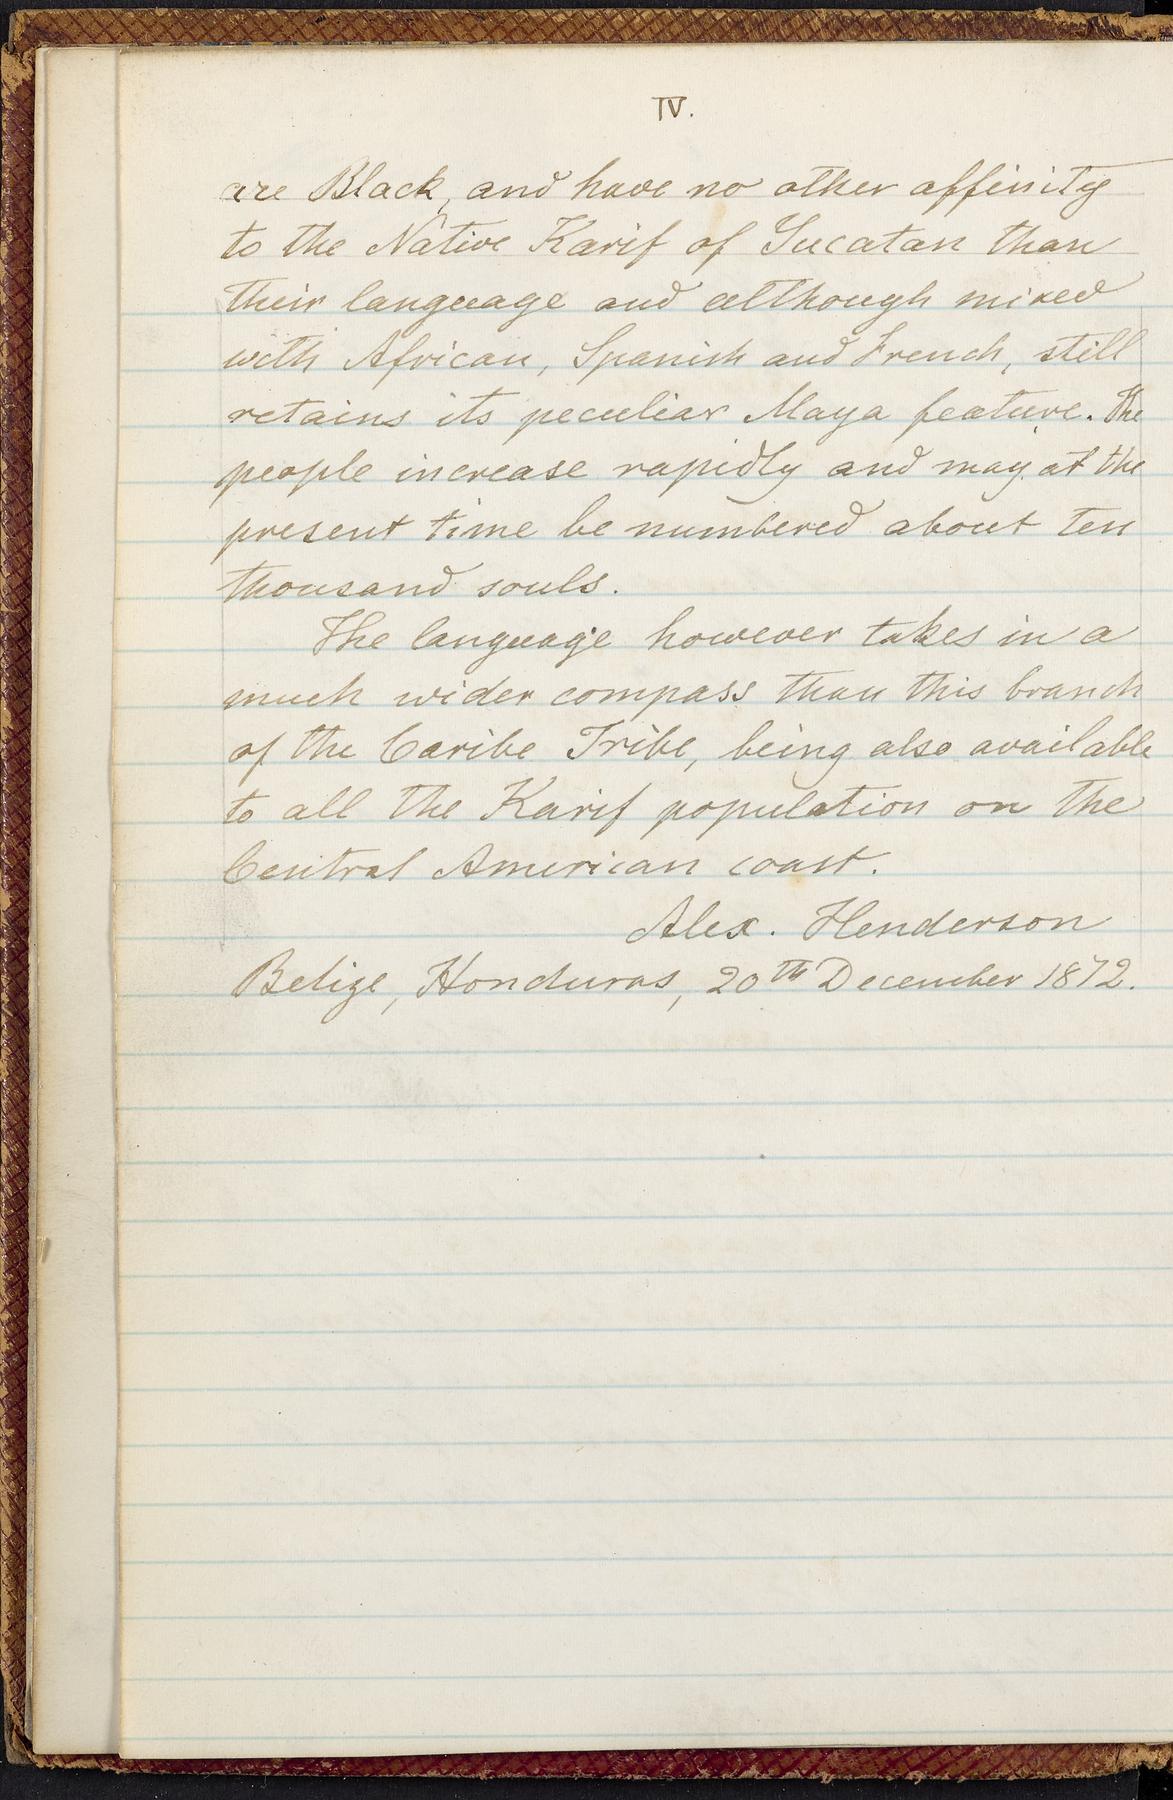 IV.
are Black, and have no other affinity
to the Native Karif of Yucatan than
their language and although mixed
with African, Spanish and French, still
retains its peculiar Maya feature. The
people increase rapidly and may at the
present time be numbered about ten
thousand souls.
The language however takes in a
much wider compass than this branch
of the Caribe Tribe, being also available
to all the Karif population on the
Central American coast.
Alex. Henderson
Belize, Honduras, 20th December 1872.